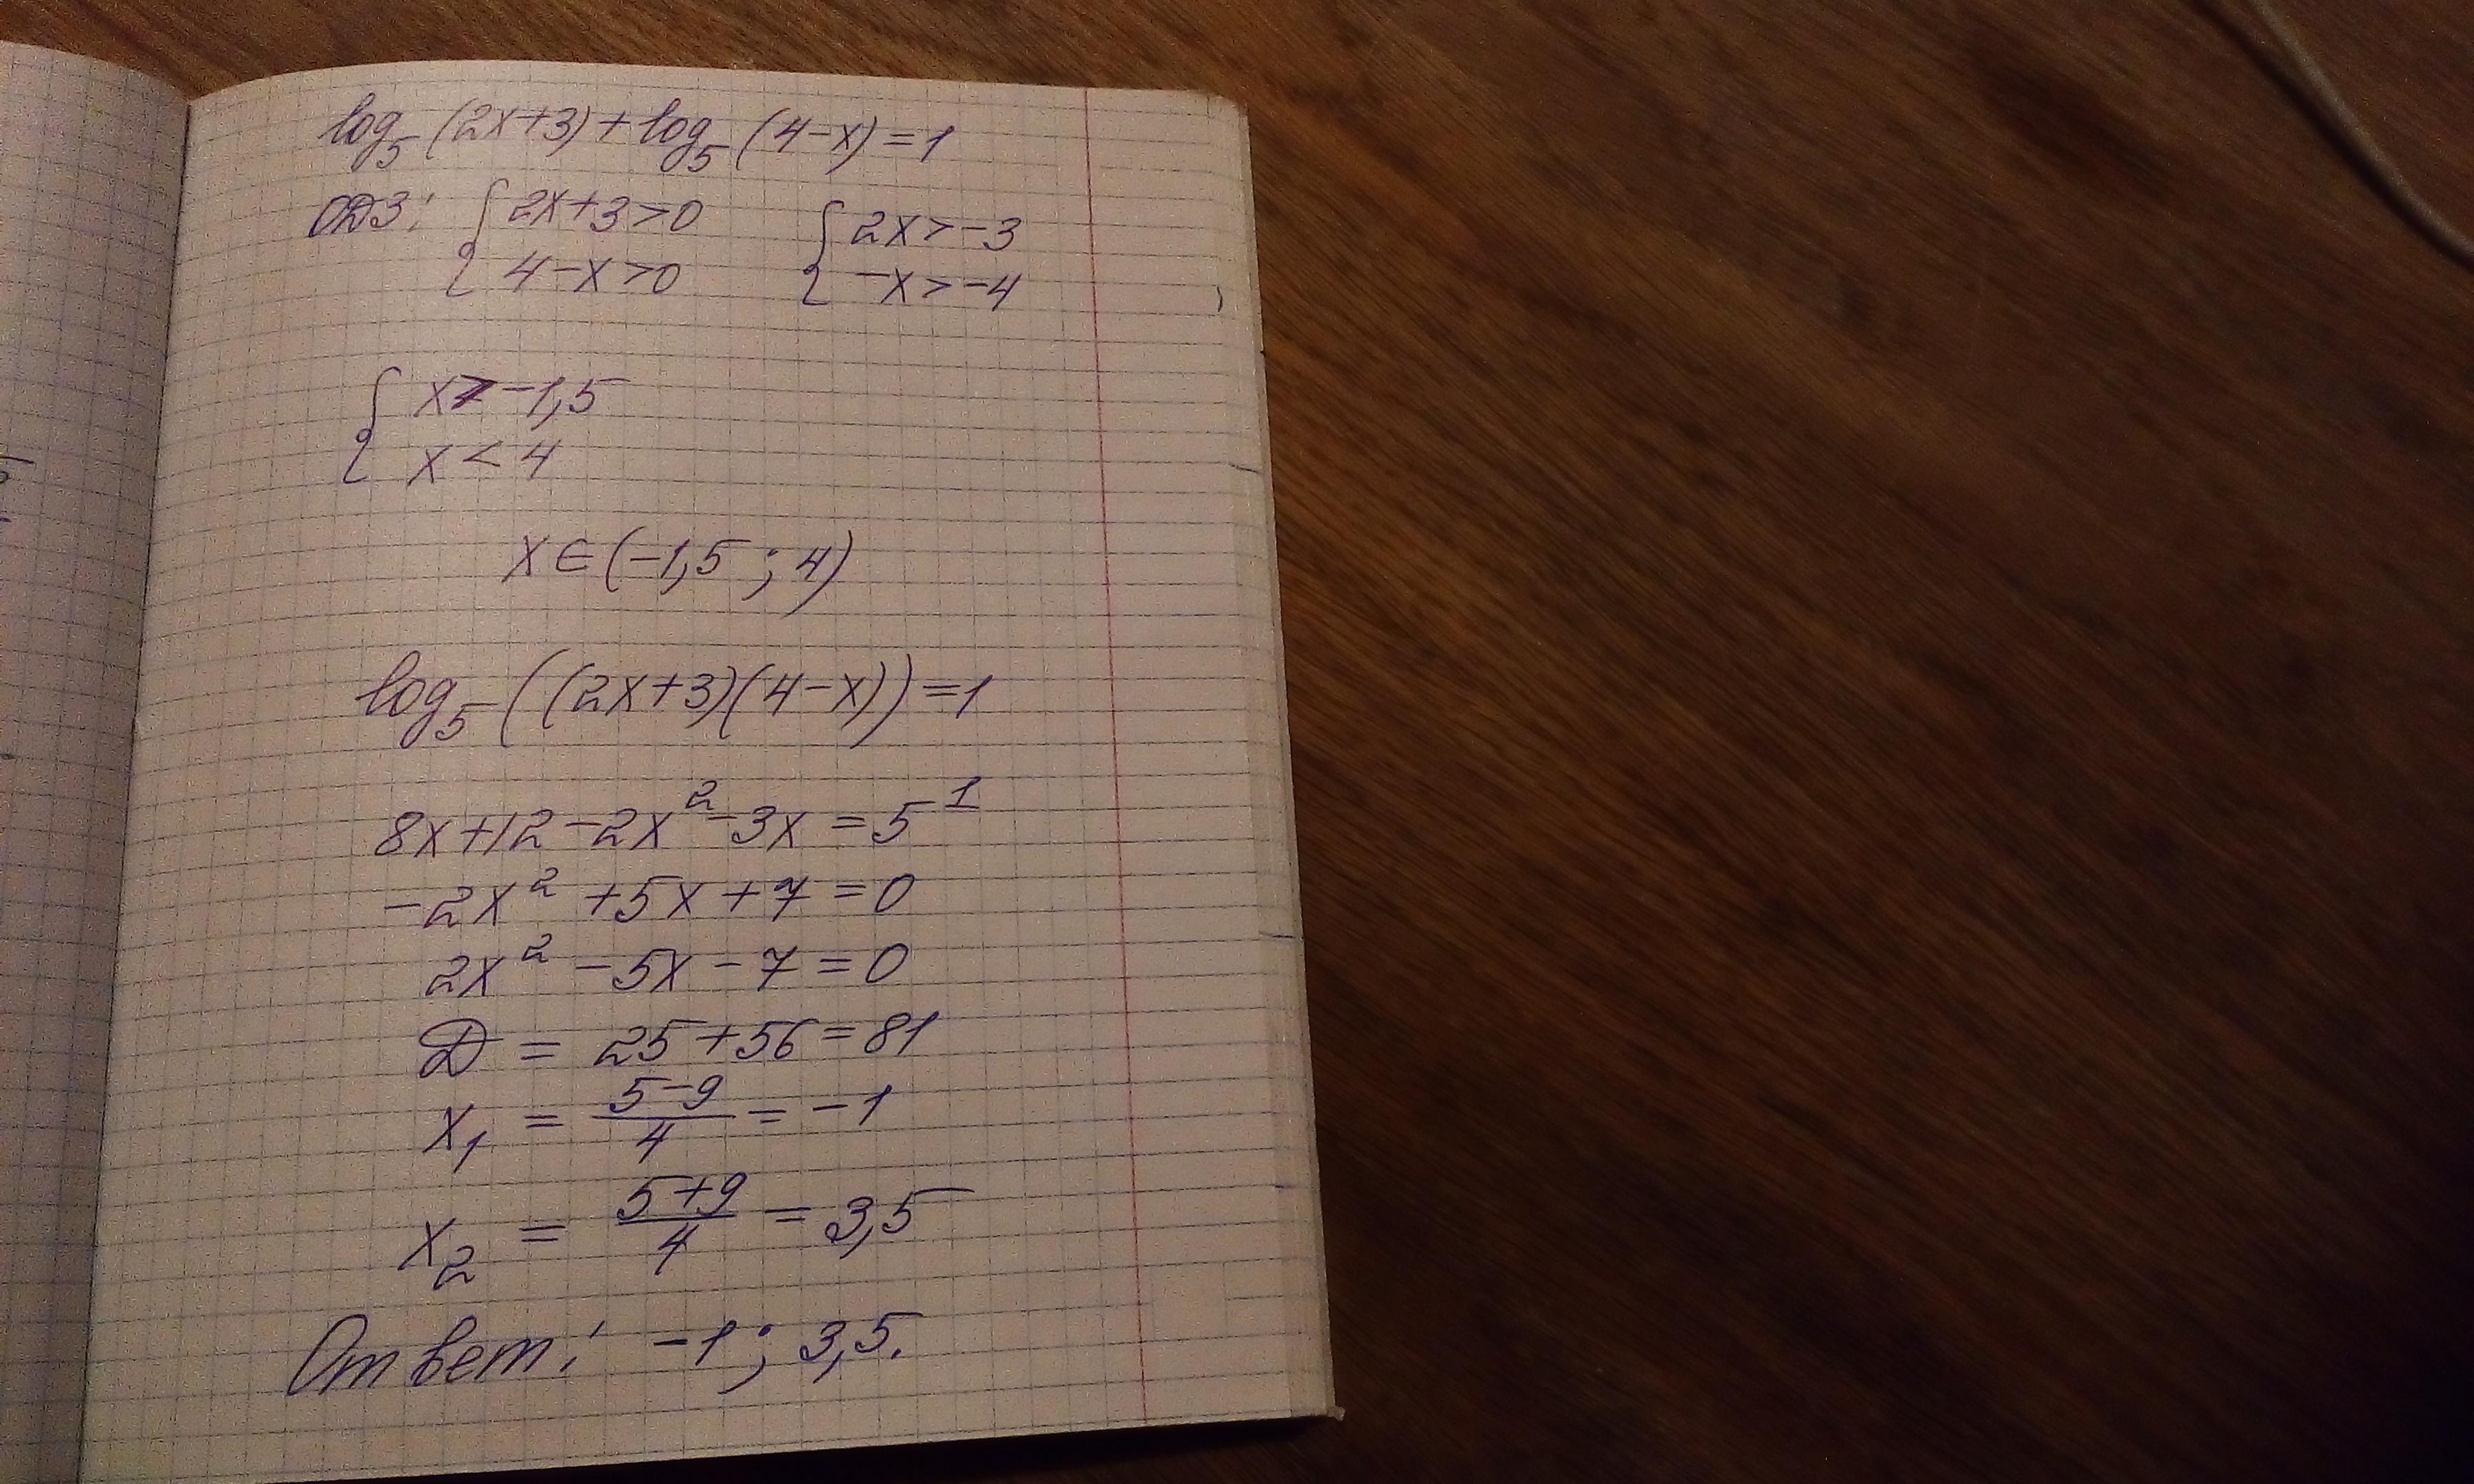 log₅(2x+3)+log₅(4-x)=1
ОДЗ: { 2x+3>0 { 2x>-3
4-x>0 -x>-4
{ x>-1,5
x<4
x∈(-1,5;4)
log₅((2x+3)(4-x))=1
8x+12-2x²-3x=5¹
-2x²+5x+7=0
2x²-5x-7=0
Д=25+56=81
x₁=(5-9)/4=-1
x₂=(5+9)/4=3,5
Ответ: -1; 3,5.